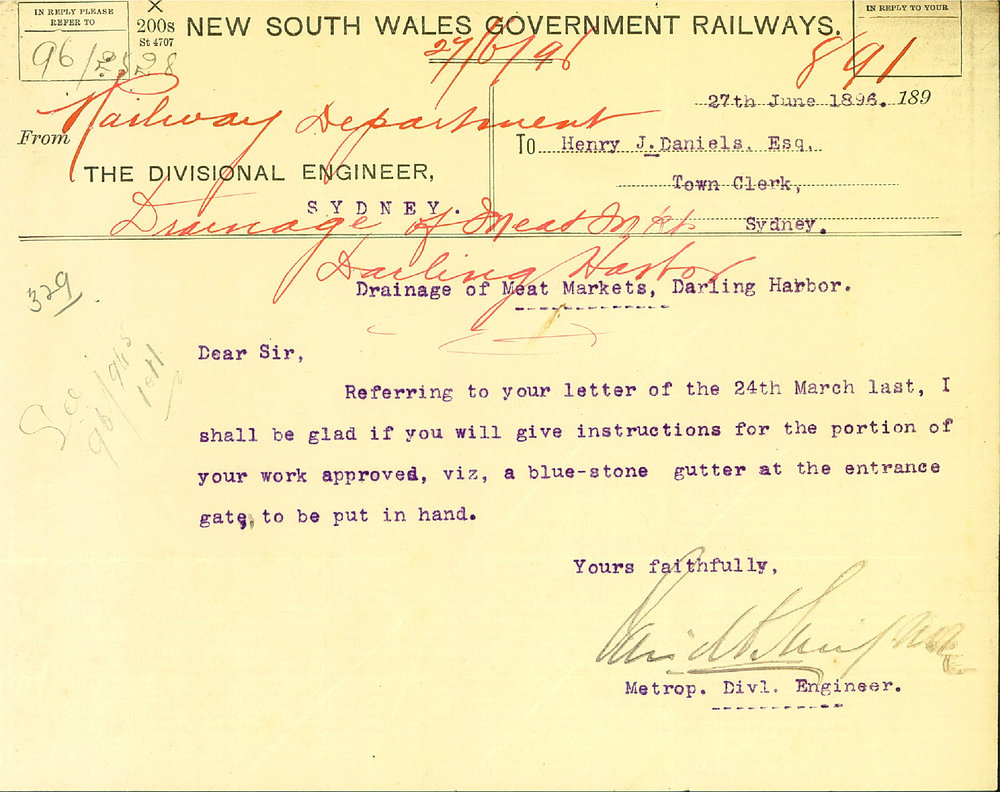 IN REPLY PLEASE
REFER TO
200s
St 4707
NEW SOUTH WALES GOVERNMENT RAILWAYS.
IN REPLY TO YOUR
27/6/96
891
27th June 1896. 189
Railway Department
From
THE DIVISIONAL ENGINEER,
SYDNEY.
To Henry J. Daniels, Esq.
Town Clerk,
Sydney.
Drainage of Meat Mkts
Darling Harbor
Drainage of Meat Markets, Darling Harbor.
329
See
Dear Sir,
Referring to your letter of the 24th March last, I
shall be glad if you will give instructions for the portion of
your work approved, viz, a blue-stone gutter at the entrance
gate, to be put in hand.
Yours faithfully,
Metrop. Divl. Engineer.